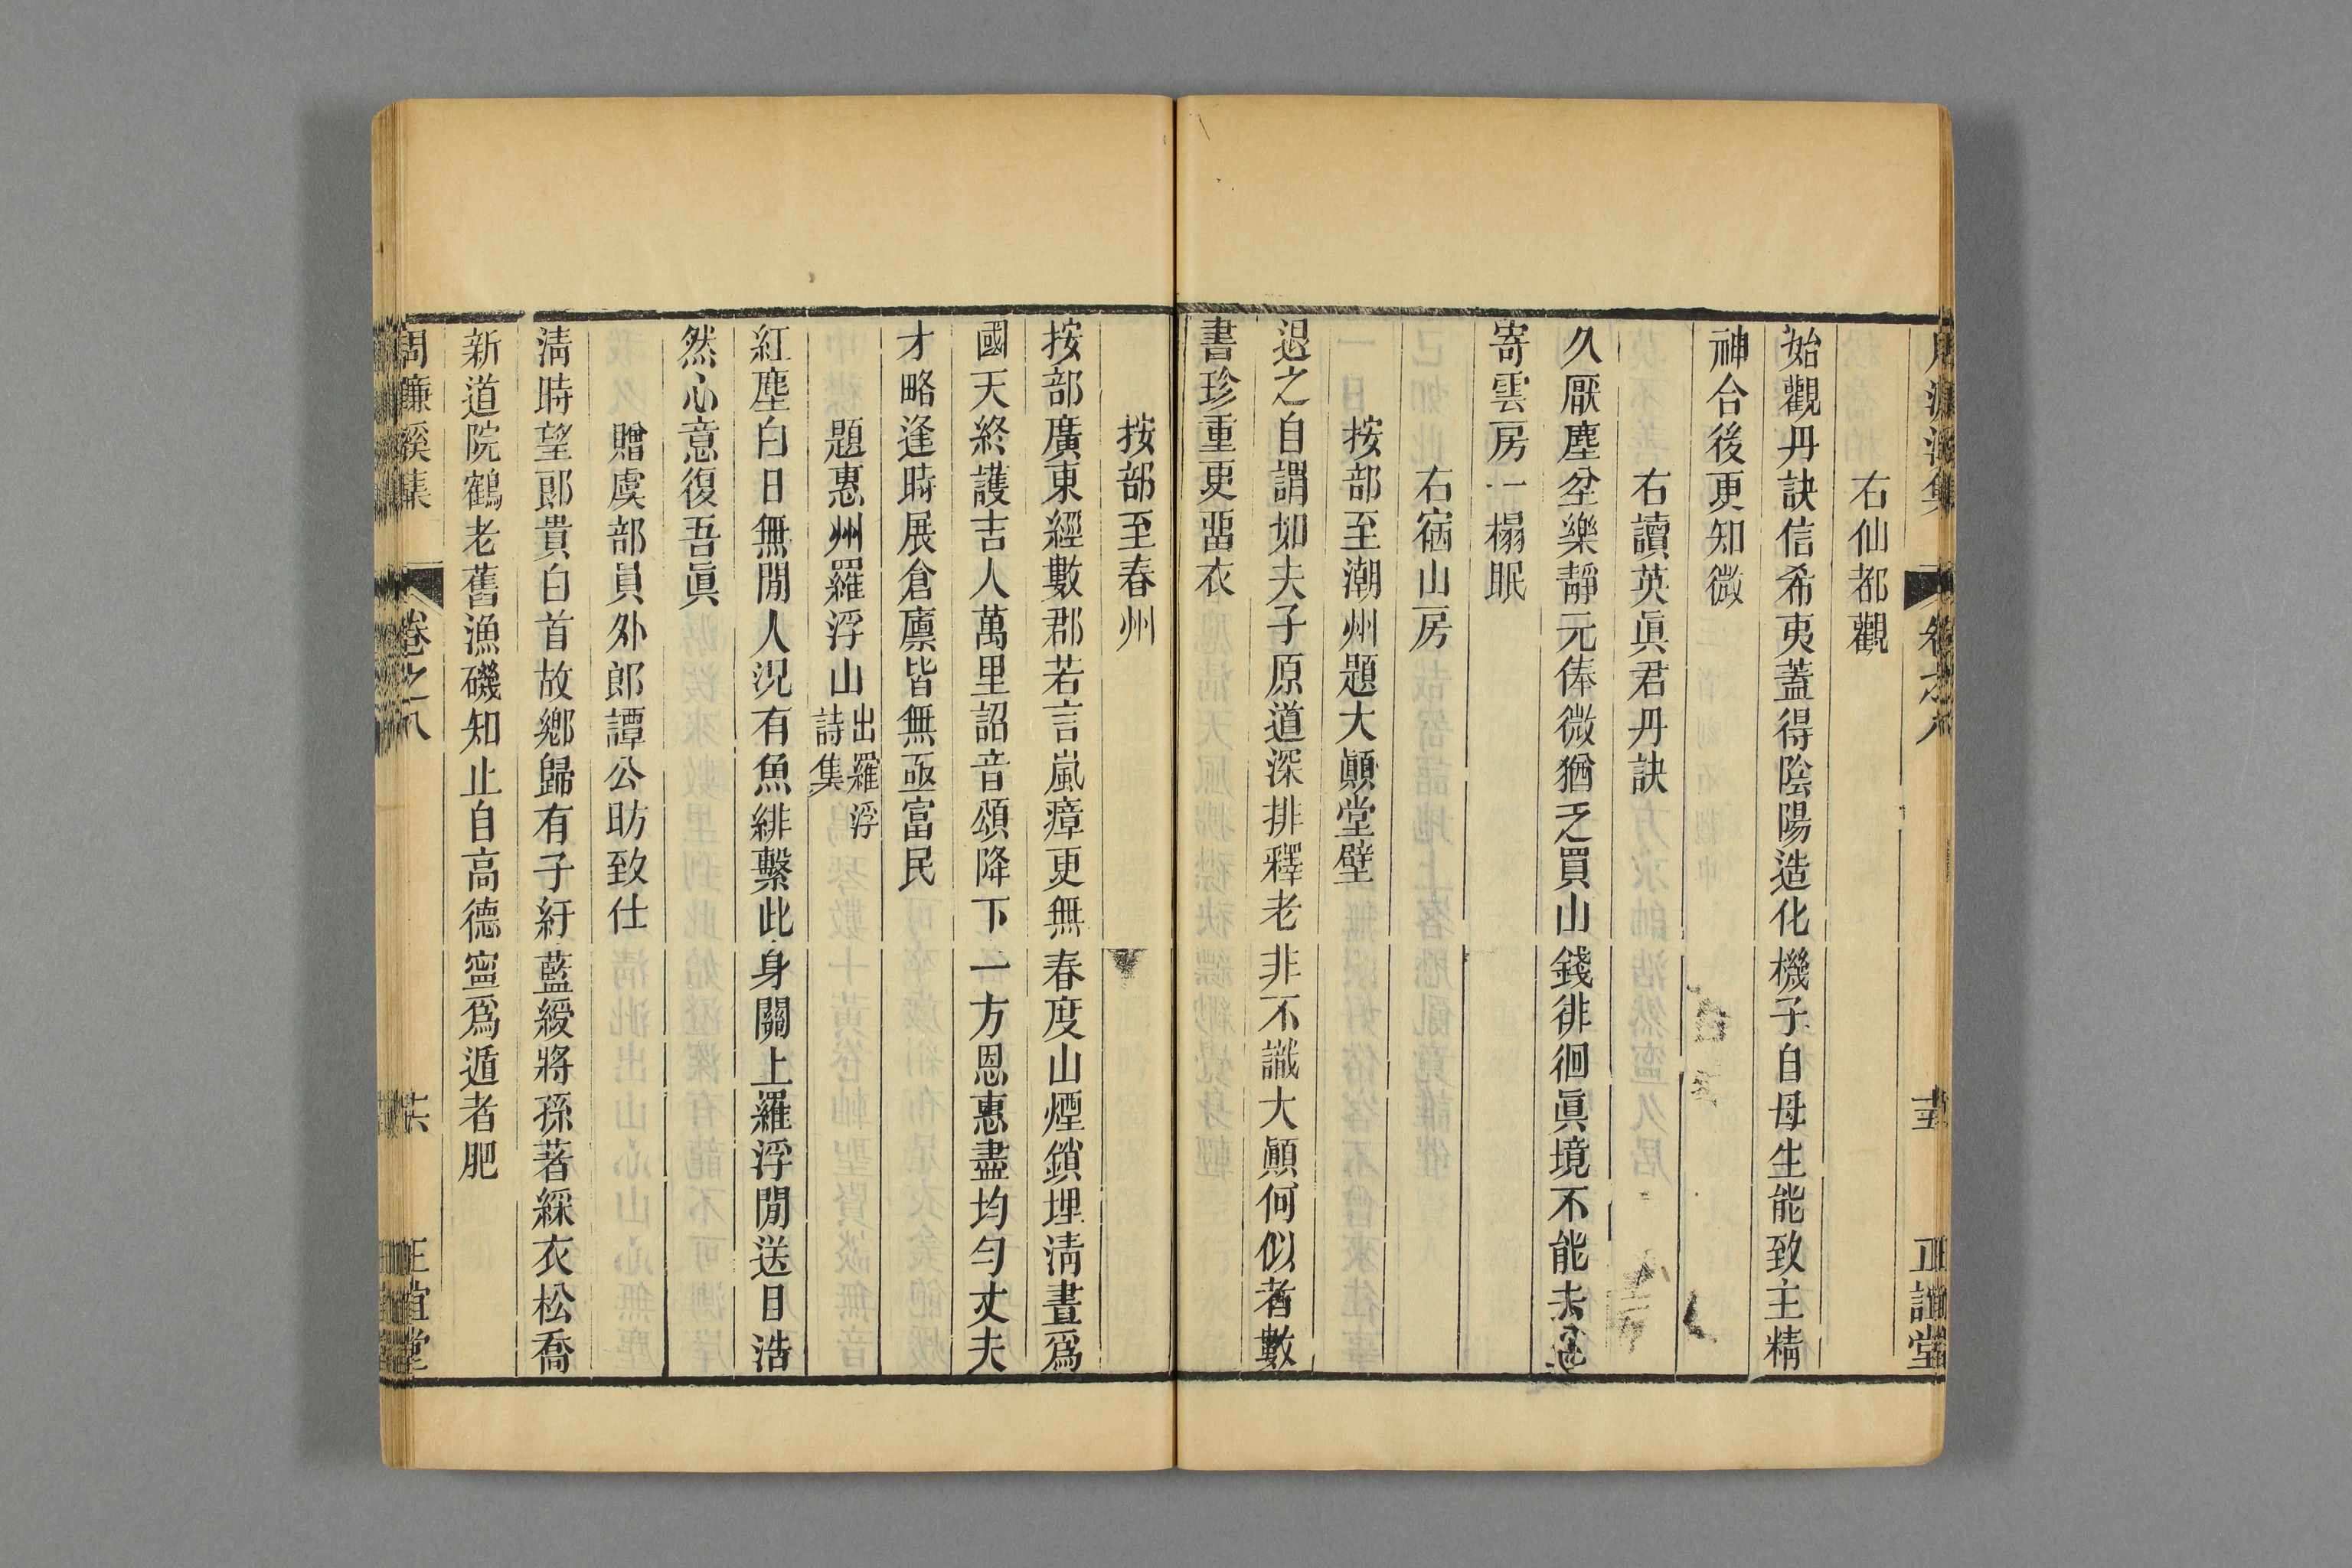 右仙都觀
始觀丹訣信希夷蓋得陰陽造化機子自母生能致主精
神合後更知微
右讀英眞君丹訣
久厭塵坌樂靜元俸微猶乏買山錢徘徊眞境不能去
寄雲房一榻眠
右宿山房
按部至潮州題大顚堂壁
退之自謂如夫子原道深排釋老非不識大顚何似者數
書珍重更畱衣
正誼堂
按部至春州
按部廣東經數郡若言嵐瘴更無春度山煙鎖埋淸晝爲
國天終護吉人萬里詔音頒降下一方恩惠盡均勻丈夫
才略逢時展倉廩皆無亟富民
題惠州羅浮山出羅浮
詩集
紅塵白日無閒人況有魚緋繫此身關上羅浮閒送目浩
然心意復吾眞
贈虞部員外郞譚公昉致仕
淸時望郞貴白首故鄕歸有子紆藍綬將孫著綵衣松喬
新道院鶴老舊漁磯知止自高德寧爲遁者肥
周濂溪集
卷之八
正誼堂